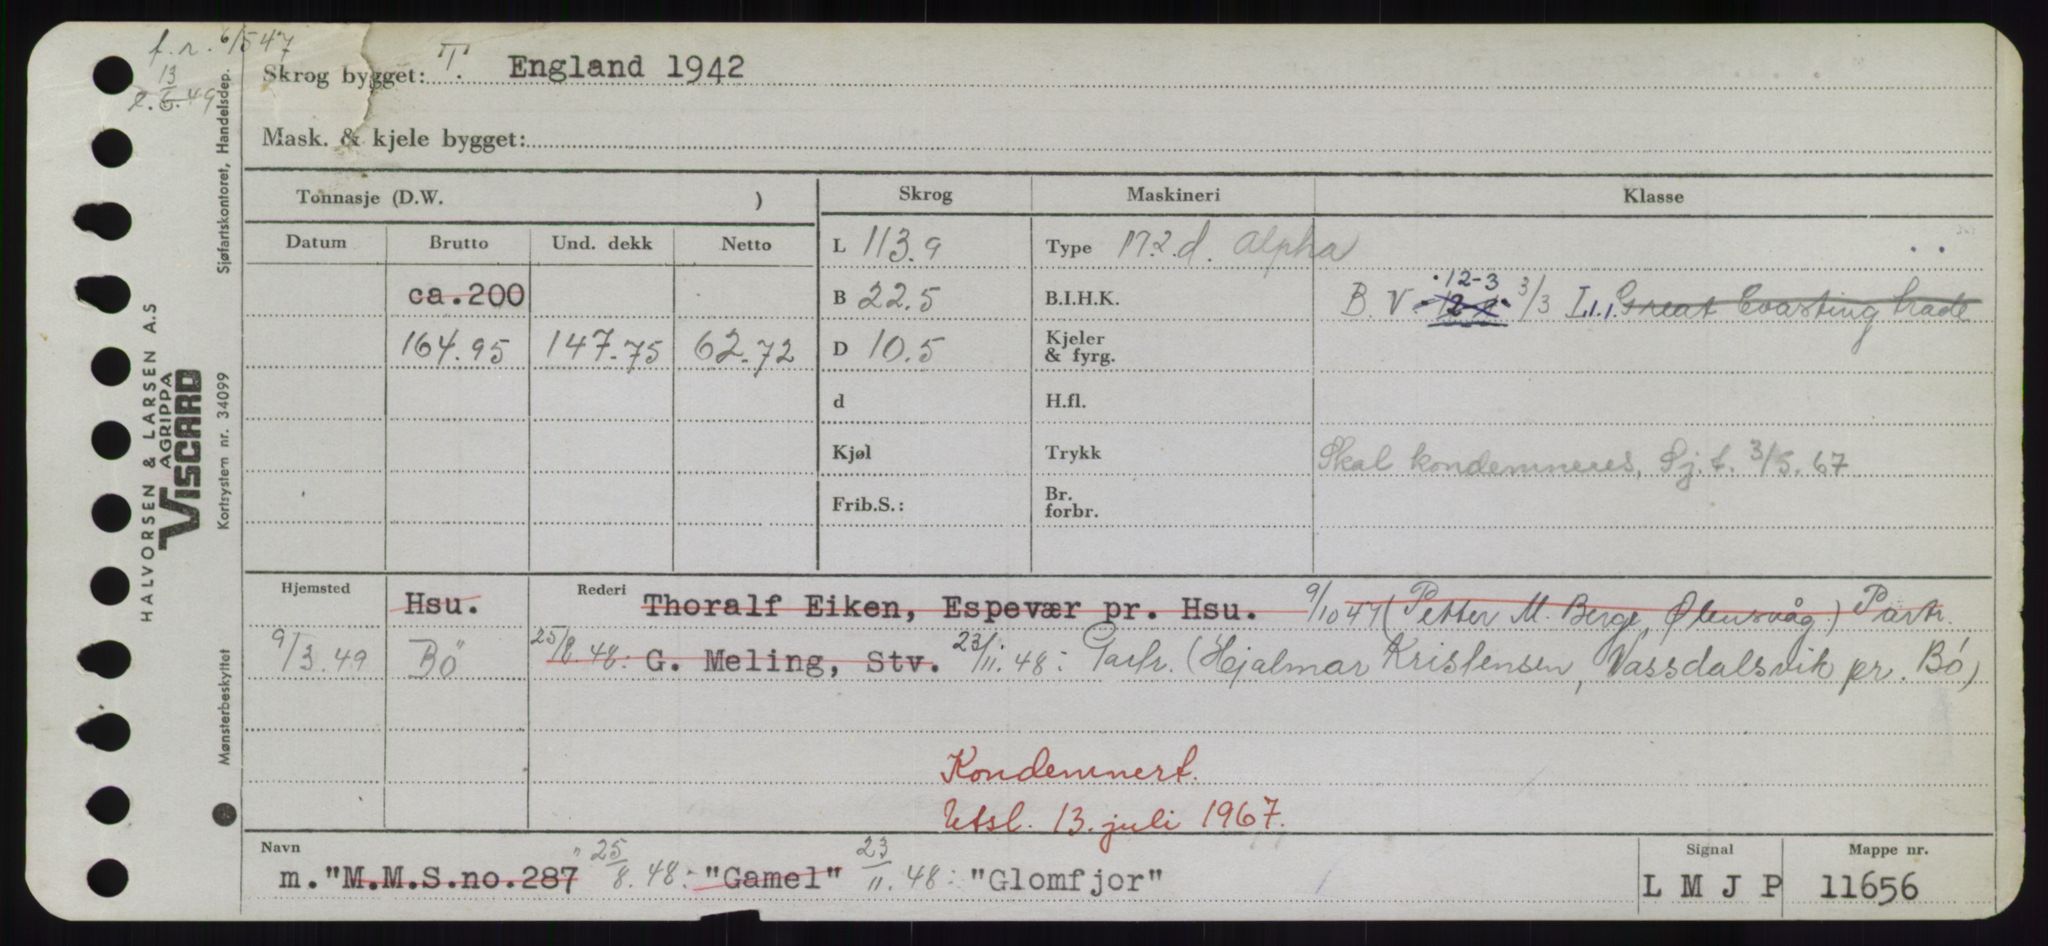 f.r. 6/5 47
13
2.6.49
Skrog bygget: T. England 1942
Mask. & kjele bygget:
Tonnasje (D.W. )
Skrog
Maskineri
Klasse
Datum
Brutto
Und. dekk
Netto
L 113.9
Type 172 d. Alpha
ca.200
B 22.5
B.I.H.K.
12-3
B. V 3/3 L1.1. Great Coasting trade
164.95
147.75
62.72
D 10.5
Kjeler
& fyrg.
d
H.fl.
Kjøl
Trykk
Skal kondemneres, Sj.f. 3/5.67
Frib.S.:
Br.
forbr.
Hjemsted
Hsu.
Rederi
Thoralf Eiken, Espevær pr. Hsu. 9/10 47 (Petter M. Berge, Ølensvåg) Partr.
9/3.49
Bö
25/8.48: G. Meling, Stv. 23/11.48: Partr. (Hjalmar Kristensen, Vassdalsvik pr. Bö)
Kondemnert.
Utsl. 13. juli 1967.
Navn
m. "M.M.S.no.287" 25/8.48: "Gamel" 23/11.48: "Glomfjor"
Signal
LMJP
Mappe nr.
11656
HALVORSEN & LARSEN A.S
AGRIPPA
VISCARD
Mønsterbeskyttet
Kortsystem nr. 34099
Sjøfartskontoret, Handelsdep.